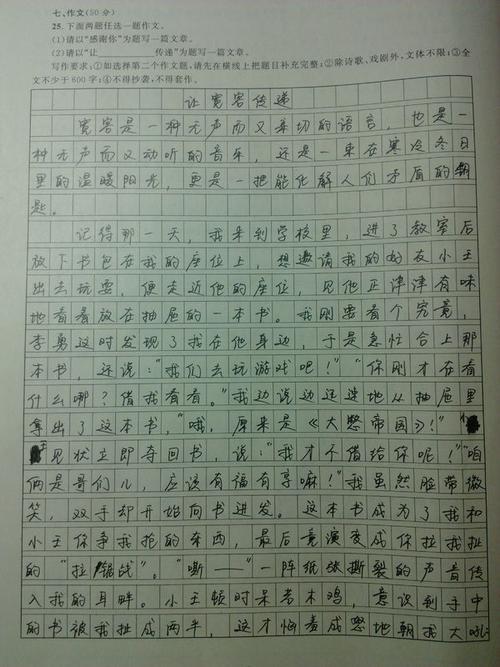 七、作文(50分)
25.下面两题任选一题作文。
(1)请以“感谢你”为题写一篇文章。
(2)请以“让　　　　传递”为题写一篇文章。
写作要求:①如选择第二个作文题,请先在横线上把题目补充完整;②除诗歌、戏剧外,文体不限;③全
文不少于600字;④不得抄袭,不得套作。
让宽容传递
宽容是一种无声而又亲切的语言，也是一
种无声而又动听的音乐，还是一束在寒冷冬日
里的温暖阳光，更是一把能化解人们矛盾的钥
匙。
记得那一天，我来到学校里，进了教室后
放下书包在我的座位上，想邀请我的好友小王
出去玩耍，便走近他的座位，见他正津津有味
地看着放在抽屉的一本书。我刚要看个究竟，
李勇这时发现了我在他身边，于是急忙合上那
本书，还说：“我们去玩游戏吧！”“你刚才在看
什么哪？借我看看。”我边说边迅速地从抽屉里
拿出了这本书，“哦，原来是《大憋帝国》！”小
王见状立即夺回书，说：“我才不借给你呢！”“咱
俩是哥们儿，应该有福有享嘛！”我虽然脸带微
笑，双手却开始向书进发。这本书成为了我和
小王你争我抢的东西，最后竟演变成你拉我扯
的“拉锯战”。“嘶——”一阵纸张撕裂的声音传
入我的耳畔。小王顿时呆若木鸡，意识到手中
的书被我扯成两半，这才恼羞成怒地朝我大吼